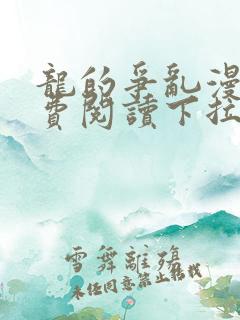 龍的爭亂漫
費閱讀下拉
雪舞離殤
未經同意禁止轉載